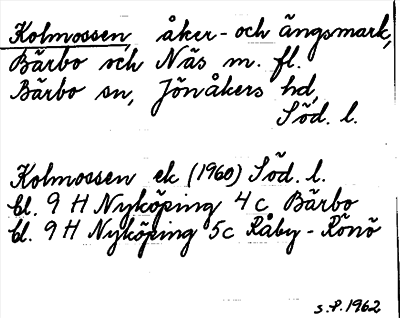 Kolmossen, åker- och ängsmark,
Bärbo och Näs m. fl.
Bärbo sn, Jönåkers hd,
Söd. l.
Kolmossen ek (1960) Söd. l.
bl. 9 H Nyköping 4 c Bärbo
bl. 9 H Nyköping 5c Råby-Rönö
S.P. 1962